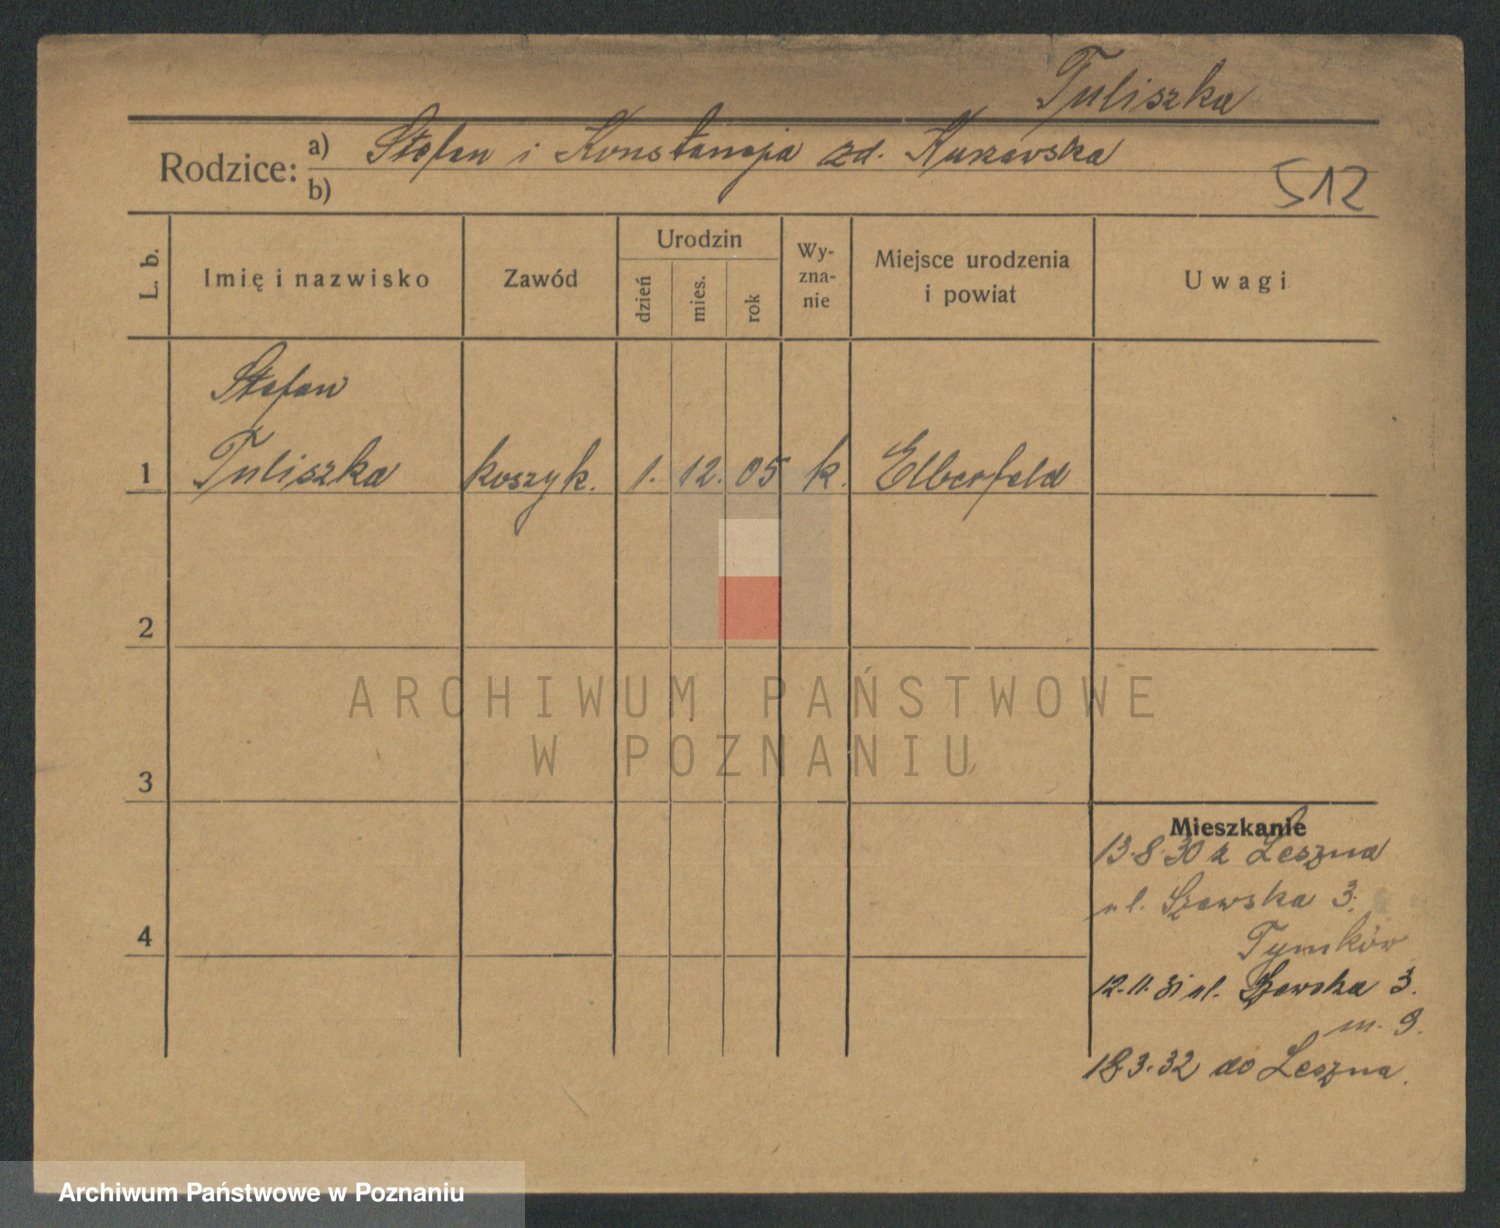 Tuliszka
Rodzice: a) Stefan i Konstancja zd. Kurowska
b)
512
L. b.
Imię i nazwisko
Zawód
Urodzin
dzień
mies.
rok
Wy-
zna-
nie
Miejsce urodzenia
i powiat
Uwagi
Stefan
1 Tuliszka koszyk. 1. 12. 05 k. Elberfeld
2
3
4
ARCHIWUM PAŃSTWOWE
W POZNANIU
Mieszkanie
13.8.30 z Leszna
ul. Szewska 3.
Tymków
12.11.31 ul. Szewska 3.
m. 9.
18.3.32 do Leszna.
Archiwum Państwowe w Poznaniu